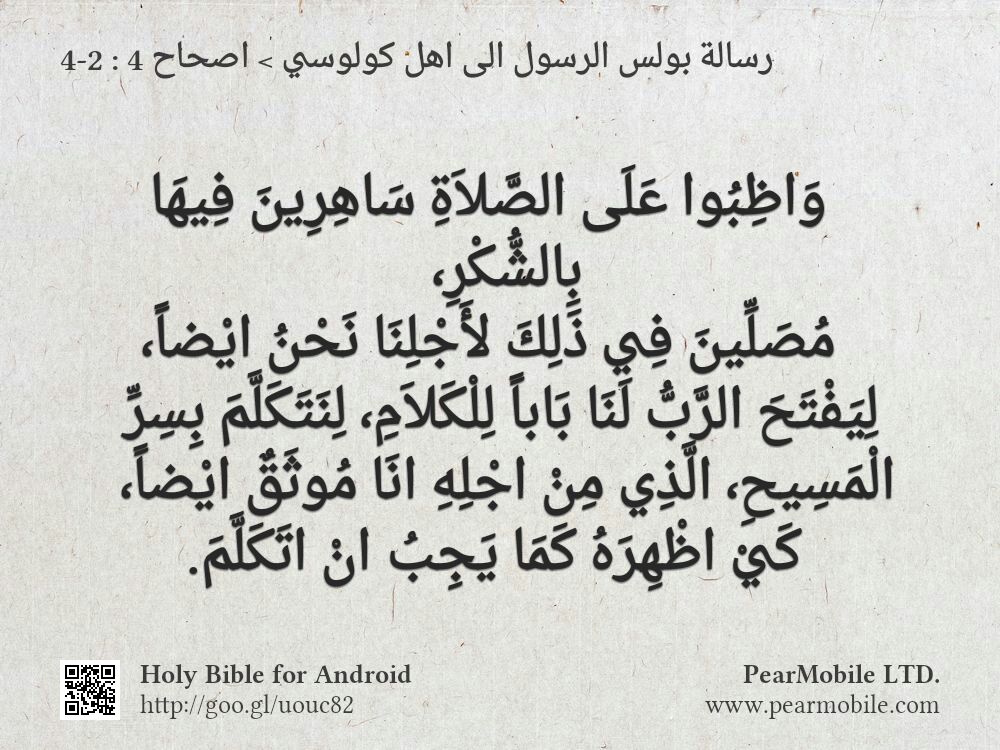 رسالة بولس الرسول الى اهل كولوسي > اصحاح 4 : 2-4
وَاظِبُوا عَلَى الصَّلاَةِ سَاهِرِينَ فِيهَا
بِالشُّكْرِ،
مُصَلِّينَ فِي ذَلِكَ لأَجْلِنَا نَحْنُ ايْضاً،
لِيَفْتَحَ الرَّبُّ لَنَا بَاباً لِلْكَلاَمِ، لِنَتَكَلَّمَ بِسِرِّ
الْمَسِيحِ، الَّذِي مِنْ اجْلِهِ انَا مُوثَقٌ ايْضاً،
كَيْ اظْهِرَهُ كَمَا يَجِبُ انْ اتَكَلَّمَ.
Holy Bible for Android
http://goo.gl/uouc82
PearMobile LTD.
www.pearmobile.com